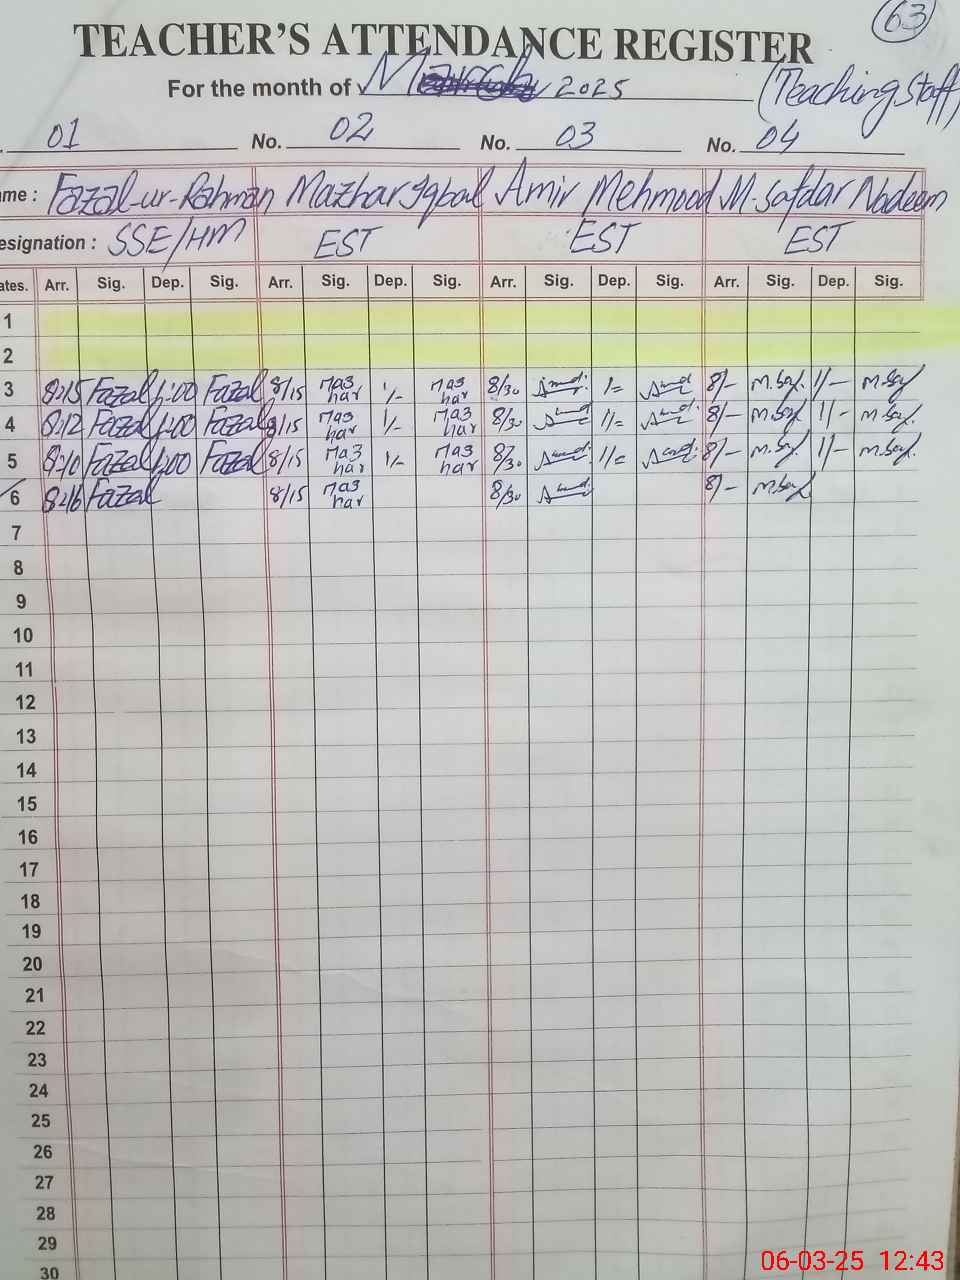 63
TEACHER'S ATTENDANCE REGISTER
For the month of March 2025 (Teaching Staff)
01 No. 02 No. 03 No. 04
ame : Fazal-ur-Rahman Mazhar Iqbal Amir Mehmood M. Safdar Nadeem
esignation : SSE/HM EST EST EST
ates. Arr. Sig. Dep. Sig. Arr. Sig. Dep. Sig. Arr. Sig. Dep. Sig. Arr. Sig. Dep. Sig.
1
2
3 8:15 Fazal 1:00 Fazal 8/15 maz har 1/- maz har 8/30 1/= 8/- 1/-
4 8:12 Fazal 1:00 Fazal 8/15 maz har 1/- maz har 8/30 1/= 8/- 1/-
5 8:10 Fazal 1:00 Fazal 8/15 maz har 1/- maz har 8/30 1/= 8/- 1/-
6 8:16 Fazal 8/15 maz har 8/30 8/-
7
8
9
10
11
12
13
14
15
16
17
18
19
20
21
22
23
24
25
26
27
28
29
30
06-03-25 12:43